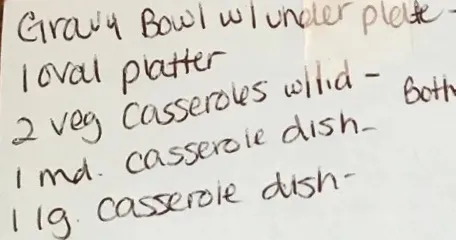 Gravy Bowl w/under plate -
1 oval platter
2 veg casseroles w/lid - Both
1 md. casserole dish-
1 lg. casserole dish-